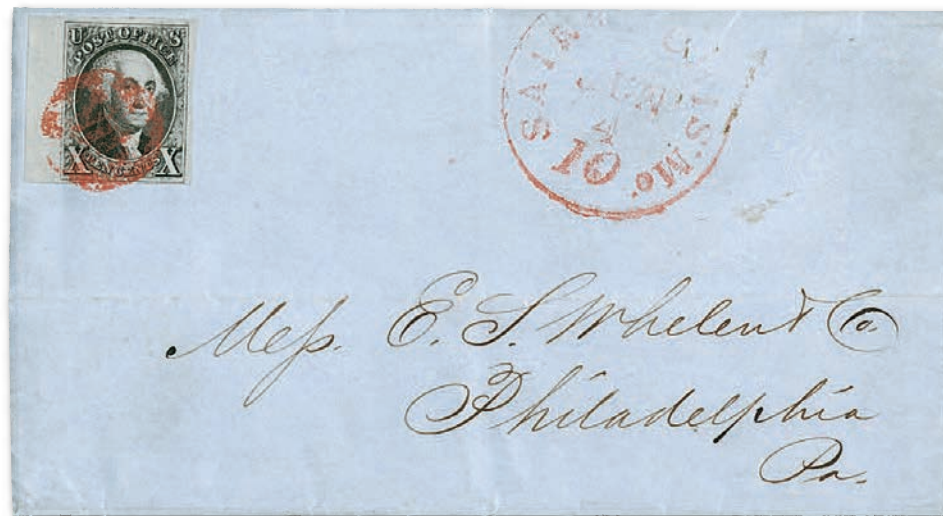 U S
POST OFFICE
X TEN CENTS X
SAI
IS. Mo.
JUN
4
10
Meſs. E. S. Whelen & Co.
Philadelphia
Pa.